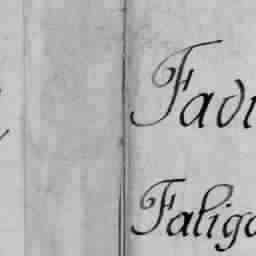 Fadi
Faligo